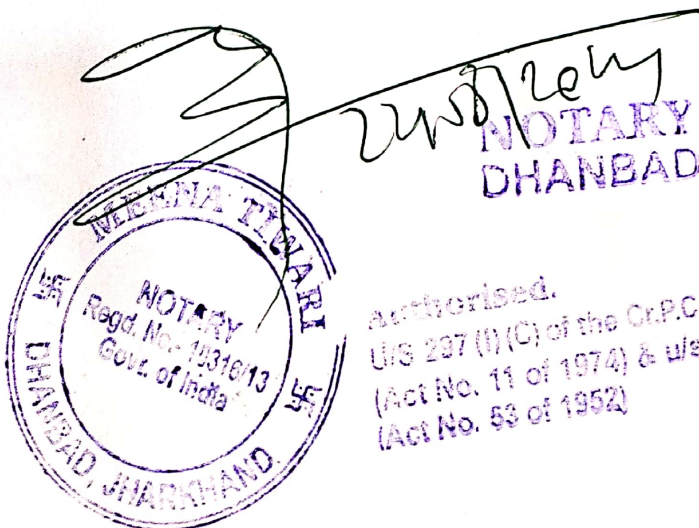 NOTARY
DHANBAD
MEENA TIWARI
NOTARY
Regd. No.- 10316/13
Govt. of India
DHANBAD, JHARKHAND
Authorised.
U/S 297 (I) (C) of the Cr.P.C
(Act No. 11 of 1974) & u/s
(Act No. 53 of 1952)